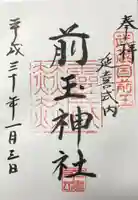 奉拝
延喜式内
前玉神社
平成三十年一月三日